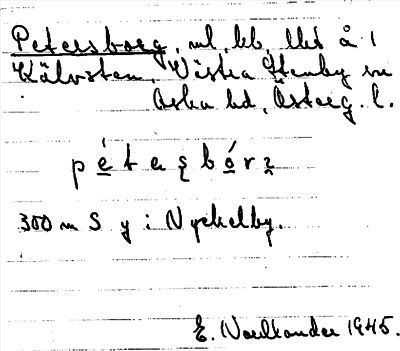 Petersborg, ml, bb, lht å 1
Kälvsten, Västra Stenby sn
Aska hd, Österg. l.
p é t e ş b ó r z
300 m S y i Nyckelby.
E. Noelkander 1945.